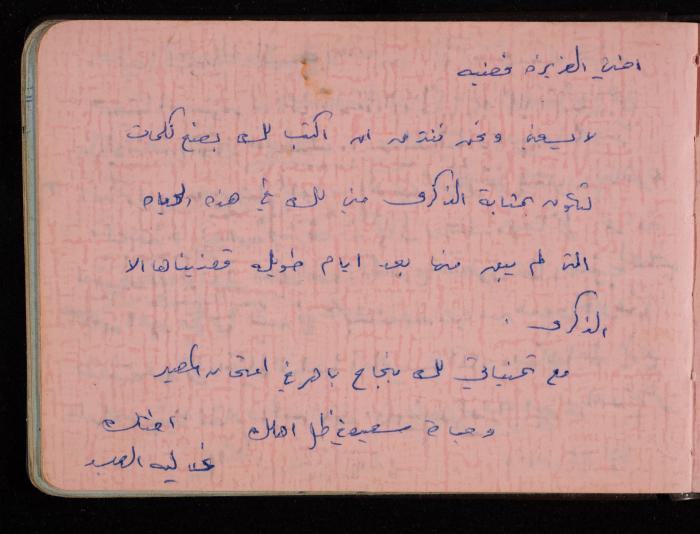 اختي العزيزة فضيه
لا يسعني ونحن نفترق ان اكتب لك بضع كلمات
لتكون بمثابة الذكرى مني لك في هذه الحياه
التي لم يبق منها بعد ايام طويله قضيناها الا
الذكرى .
مع تمنياتي لك بنجاح باهر في امتحان المصير
وحياة سعيده في ظل اهلك اختك
العبد